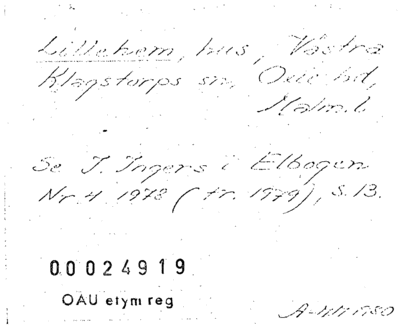 Lillehem, hus, Västra
Klagstorps sn, Oxie hd,
Malm. l.
Se I. Ingers i Elbogen
Nr. 4 1978 (tr. 1979), s. 13.
00024919
OAU etym reg
1980